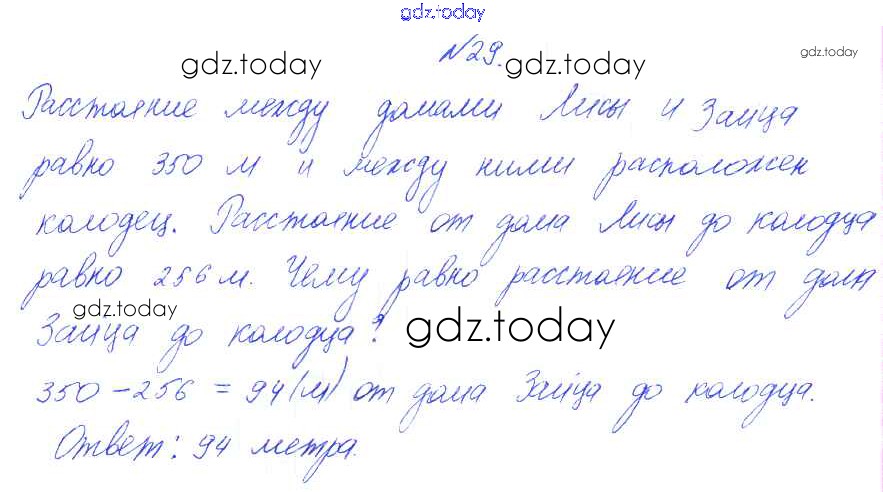 gdz.today
№29.
gdz.today gdz.today gdz.today
Расстояние между домами Лисы и Зайца
равно 350 м и между ними расположен
колодец. Расстояние от дома Лисы до колодца
равно 256 м. Чему равно расстояние от дома
gdz.today
Зайца до колодца?
gdz.today
350 - 256 = 94 (м) от дома Зайца до колодца.
Ответ: 94 метра.